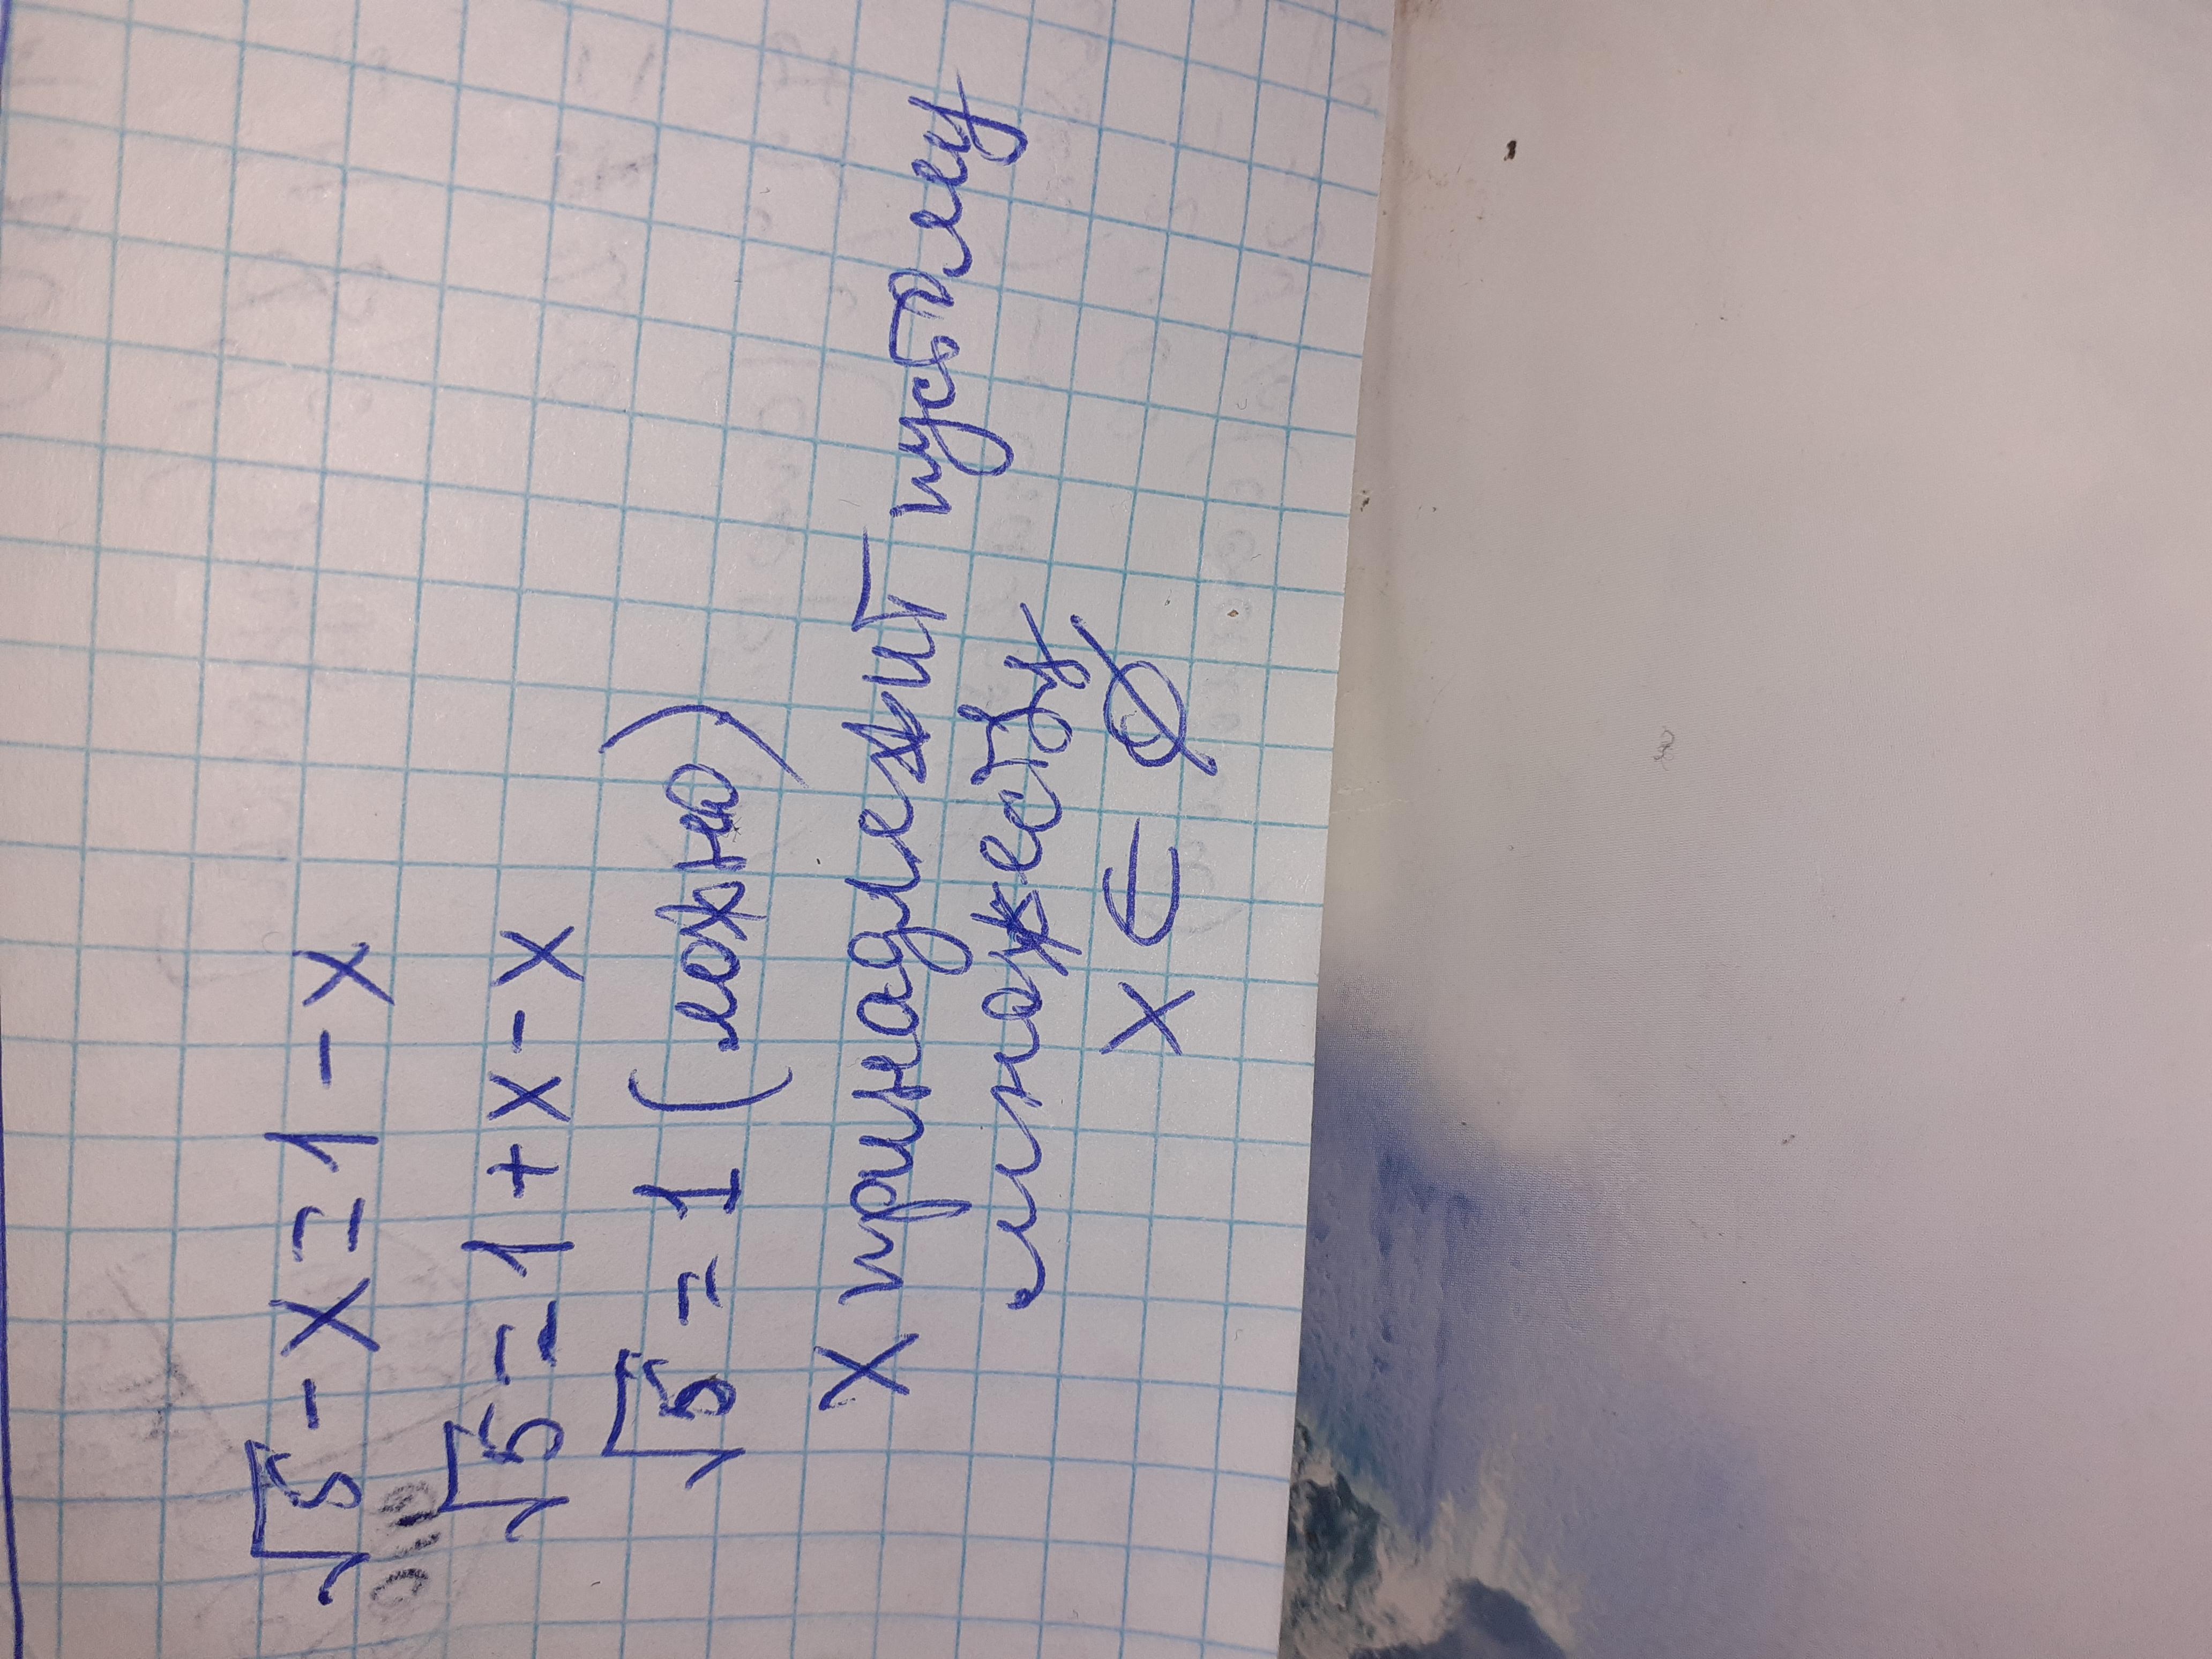 √5 - x = 1 - x
√5 = 1 + x - x
√5 = 1 (ложно)
х принадлежит пустому
множеству
x ∈ ∅